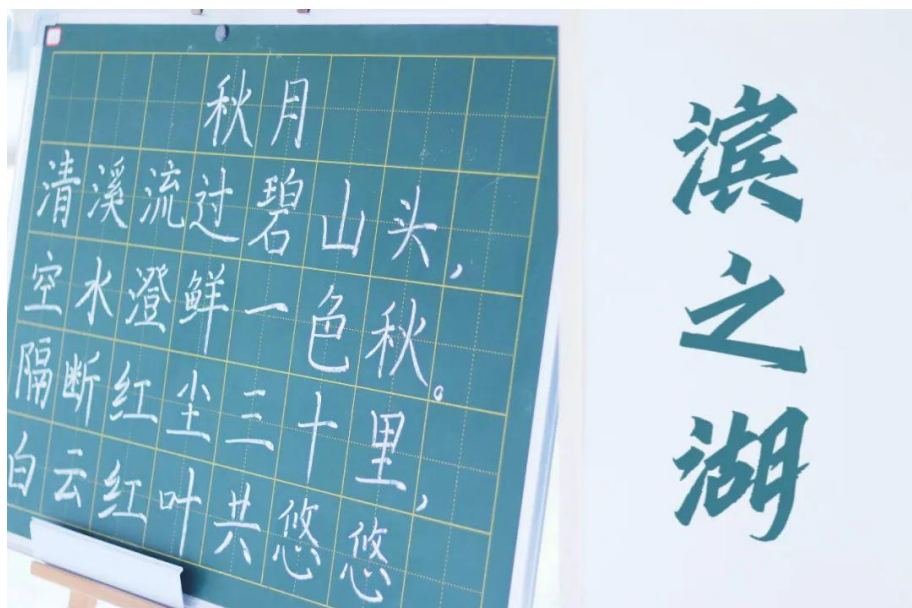 秋月
清溪流过碧山头，
空水澄鲜一色秋。
隔断红尘三十里，
白云红叶共悠悠
滨之湖